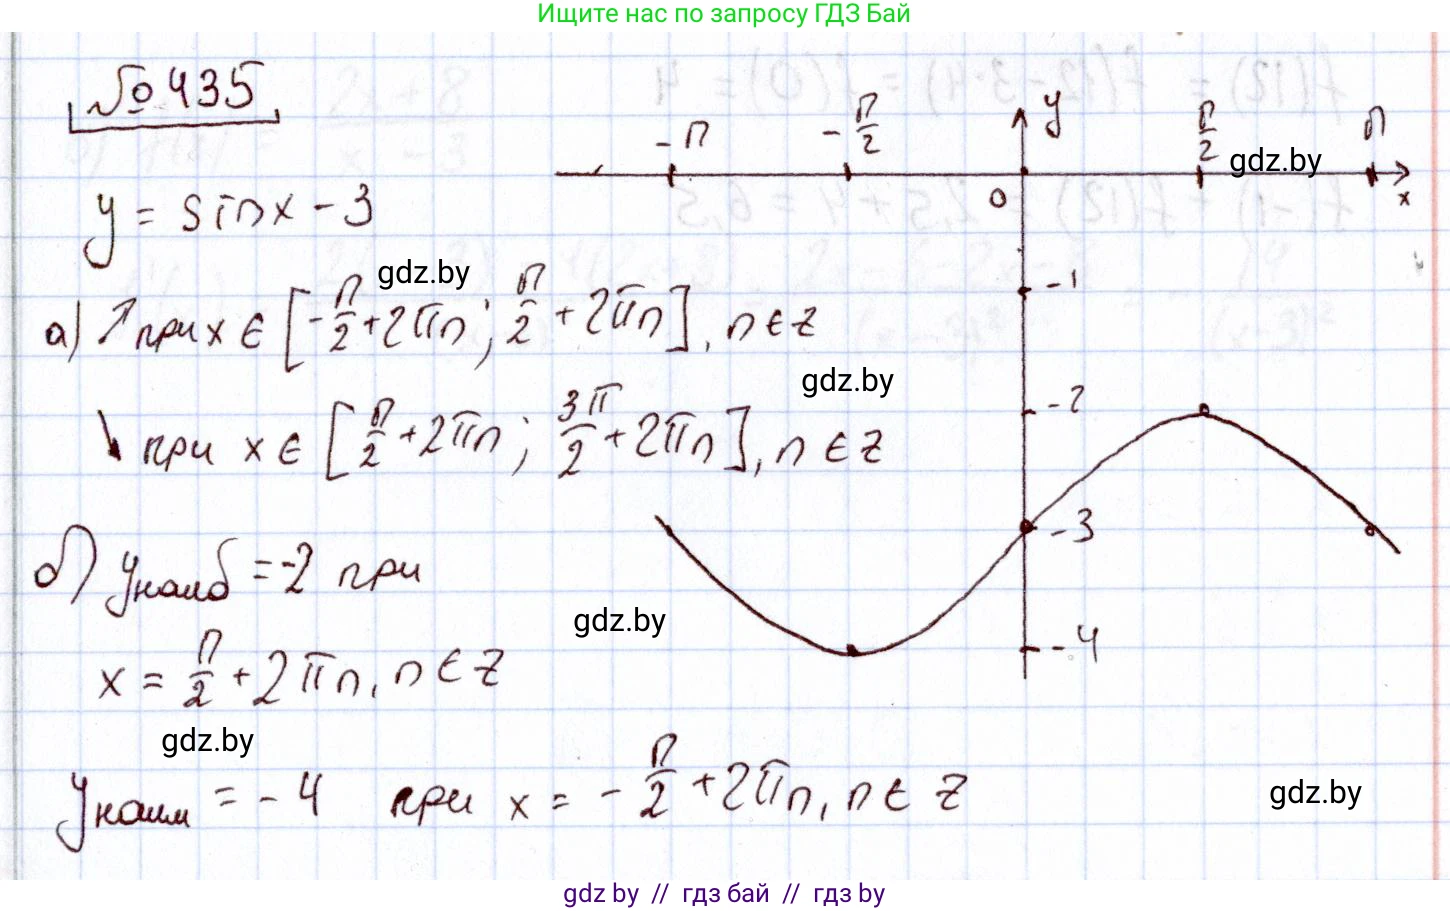 Ищите нас по запросу ГДЗ Бай
№ 435
y = sin x - 3
gdz.by
а) ↗ при x ∈ [-π/2 + 2πn; π/2 + 2πn], n ∈ Z
gdz.by
↘ при x ∈ [π/2 + 2πn; 3π/2 + 2πn], n ∈ Z
б) yнаиб = -2 при
x = π/2 + 2πn, n ∈ Z
gdz.by
yнаим = -4 при x = -π/2 + 2πn, n ∈ Z
-π -π/2 0 y π/2 π x
gdz.by
-1
-2
-3
gdz.by
-4
gdz.by
gdz.by // гдз бай // gdz.by